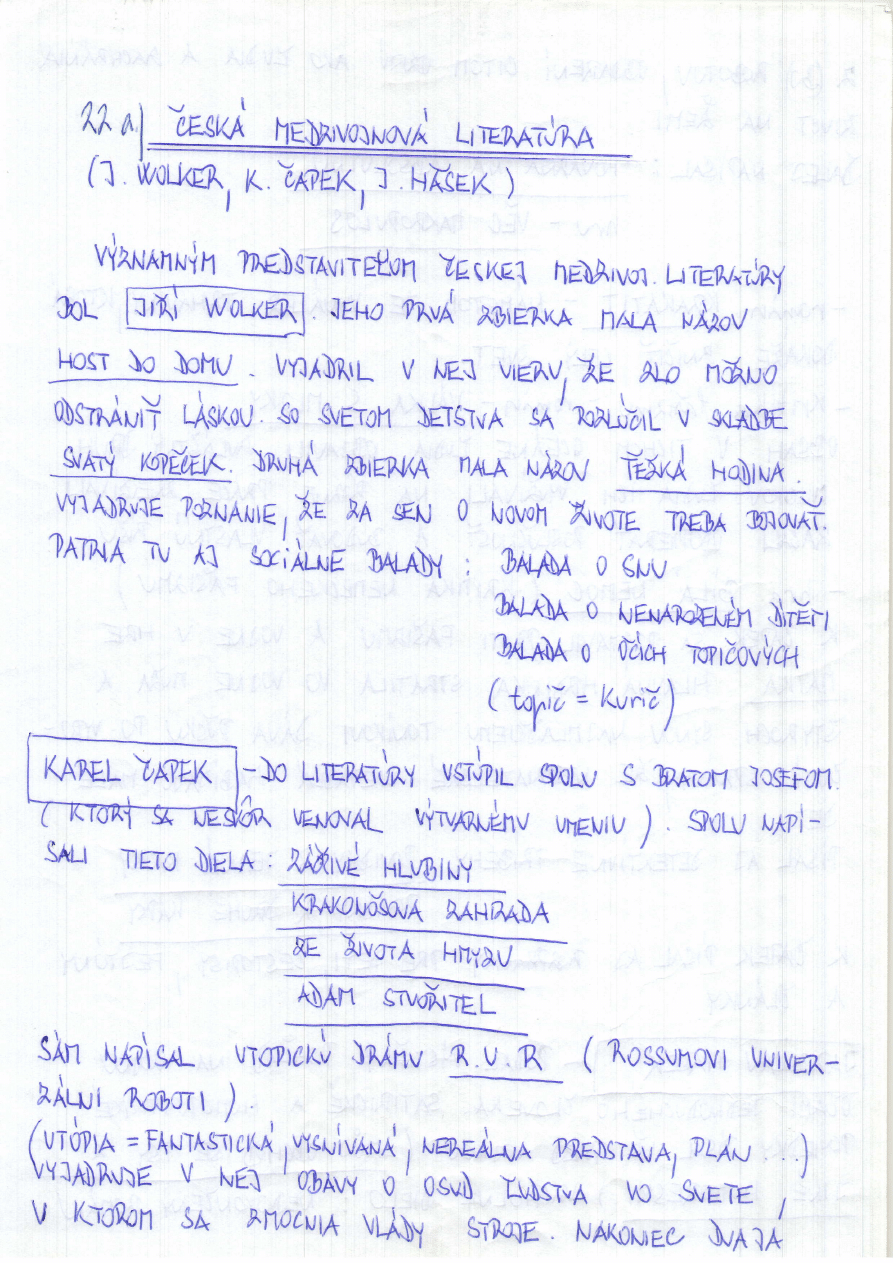 22 a) ČESKÁ MEDZIVOJNOVÁ LITERATÚRA
(J. WOLKER, K. ČAPEK, J. HAŠEK)
VÝZNAMNÝM PREDSTAVITEĽOM ČESKEJ MEDZIVOJ. LITERATÚRY
BOL JIŘÍ WOLKER. JEHO PRVÁ ZBIERKA MALA NÁZOV
HOST DO DOMU. VYJADRIL V NEJ VIERU, ŽE ZLO MOŽNO
ODSTRÁNIŤ LÁSKOU. SO SVETOM DETSTVA SA ROZLÚČIL V SKLADBE
SVATÝ KOPEČEK. DRUHÁ ZBIERKA MALA NÁZOV ŤEŽKÁ HODINA.
VYJADRUJE POZNANIE, ŽE ZA SEN O NOVOM ŽIVOTE TREBA BOJOVAŤ.
PATRIA TU AJ SOCIÁLNE BALADY: BALADA O SNU
BALADA O NENAROZENÉM DÍTĚTI
BALADA O OČÍCH TOPIČOVÝCH
(topič = kurič)
KAREL ČAPEK - DO LITERATÚRY VSTÚPIL SPOLU S BRATOM JOSEFOM.
(KTORÝ SA NESKÔR VENOVAL VÝTVARNÉMU UMENIU). SPOLU NAPÍ
SALI TIETO DIELA: ZÁŘIVÉ HLUBINY
KRAKONOŠOVA ZAHRADA
ZE ŽIVOTA HMYZU
ADAM STVOŘITEL
SÁM NAPÍSAL UTOPICKÚ DRÁMU R.U.R (ROSSUMOVI UNIVER-
ZÁLNI ROBOTI)
(UTÓPIA = FANTASTICKÁ, VYSNÍVANÁ, NEREÁLNA PREDSTAVA, PLÁN...)
VYJADRUJE V NEJ OBAVY O OSUD ĽUDSTVA VO SVETE,
V KTOROM SA ZMOCNIA VLÁDY STROJE. NAKONIEC DVAJA